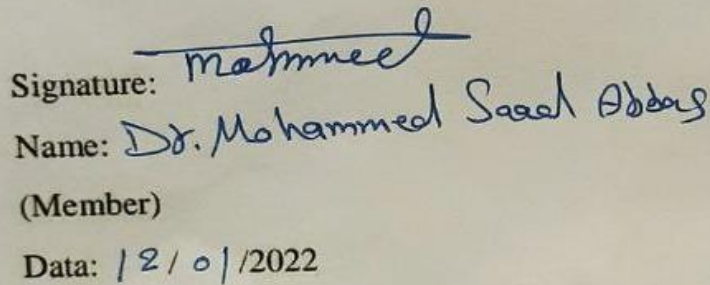 Signature: Mohmmed
Name: Dr. Mohammed Saad Abbas
(Member)
Data: 12/01/2022